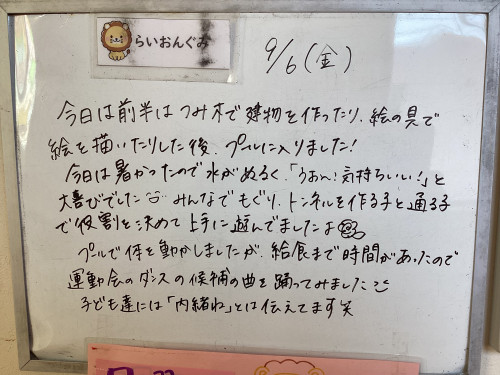 らいおんぐみ
9/6(金)
今日は前半はつみ木で建物を作ったり、絵の具で
絵を描いたりした後、プールに入りました!
今日は暑かったので水がぬるく、「うわ〜!気持ちいい!」と
大喜びでした みんなでもぐり、トンネルを作る子と通る子
で役割を決めて上手に遊んでましたよ
プールで体を動かしましたが、給食まで時間があったので
運動会のダンスの候補の曲を踊ってみました
子ども達には「内緒ね」とは伝えてます笑